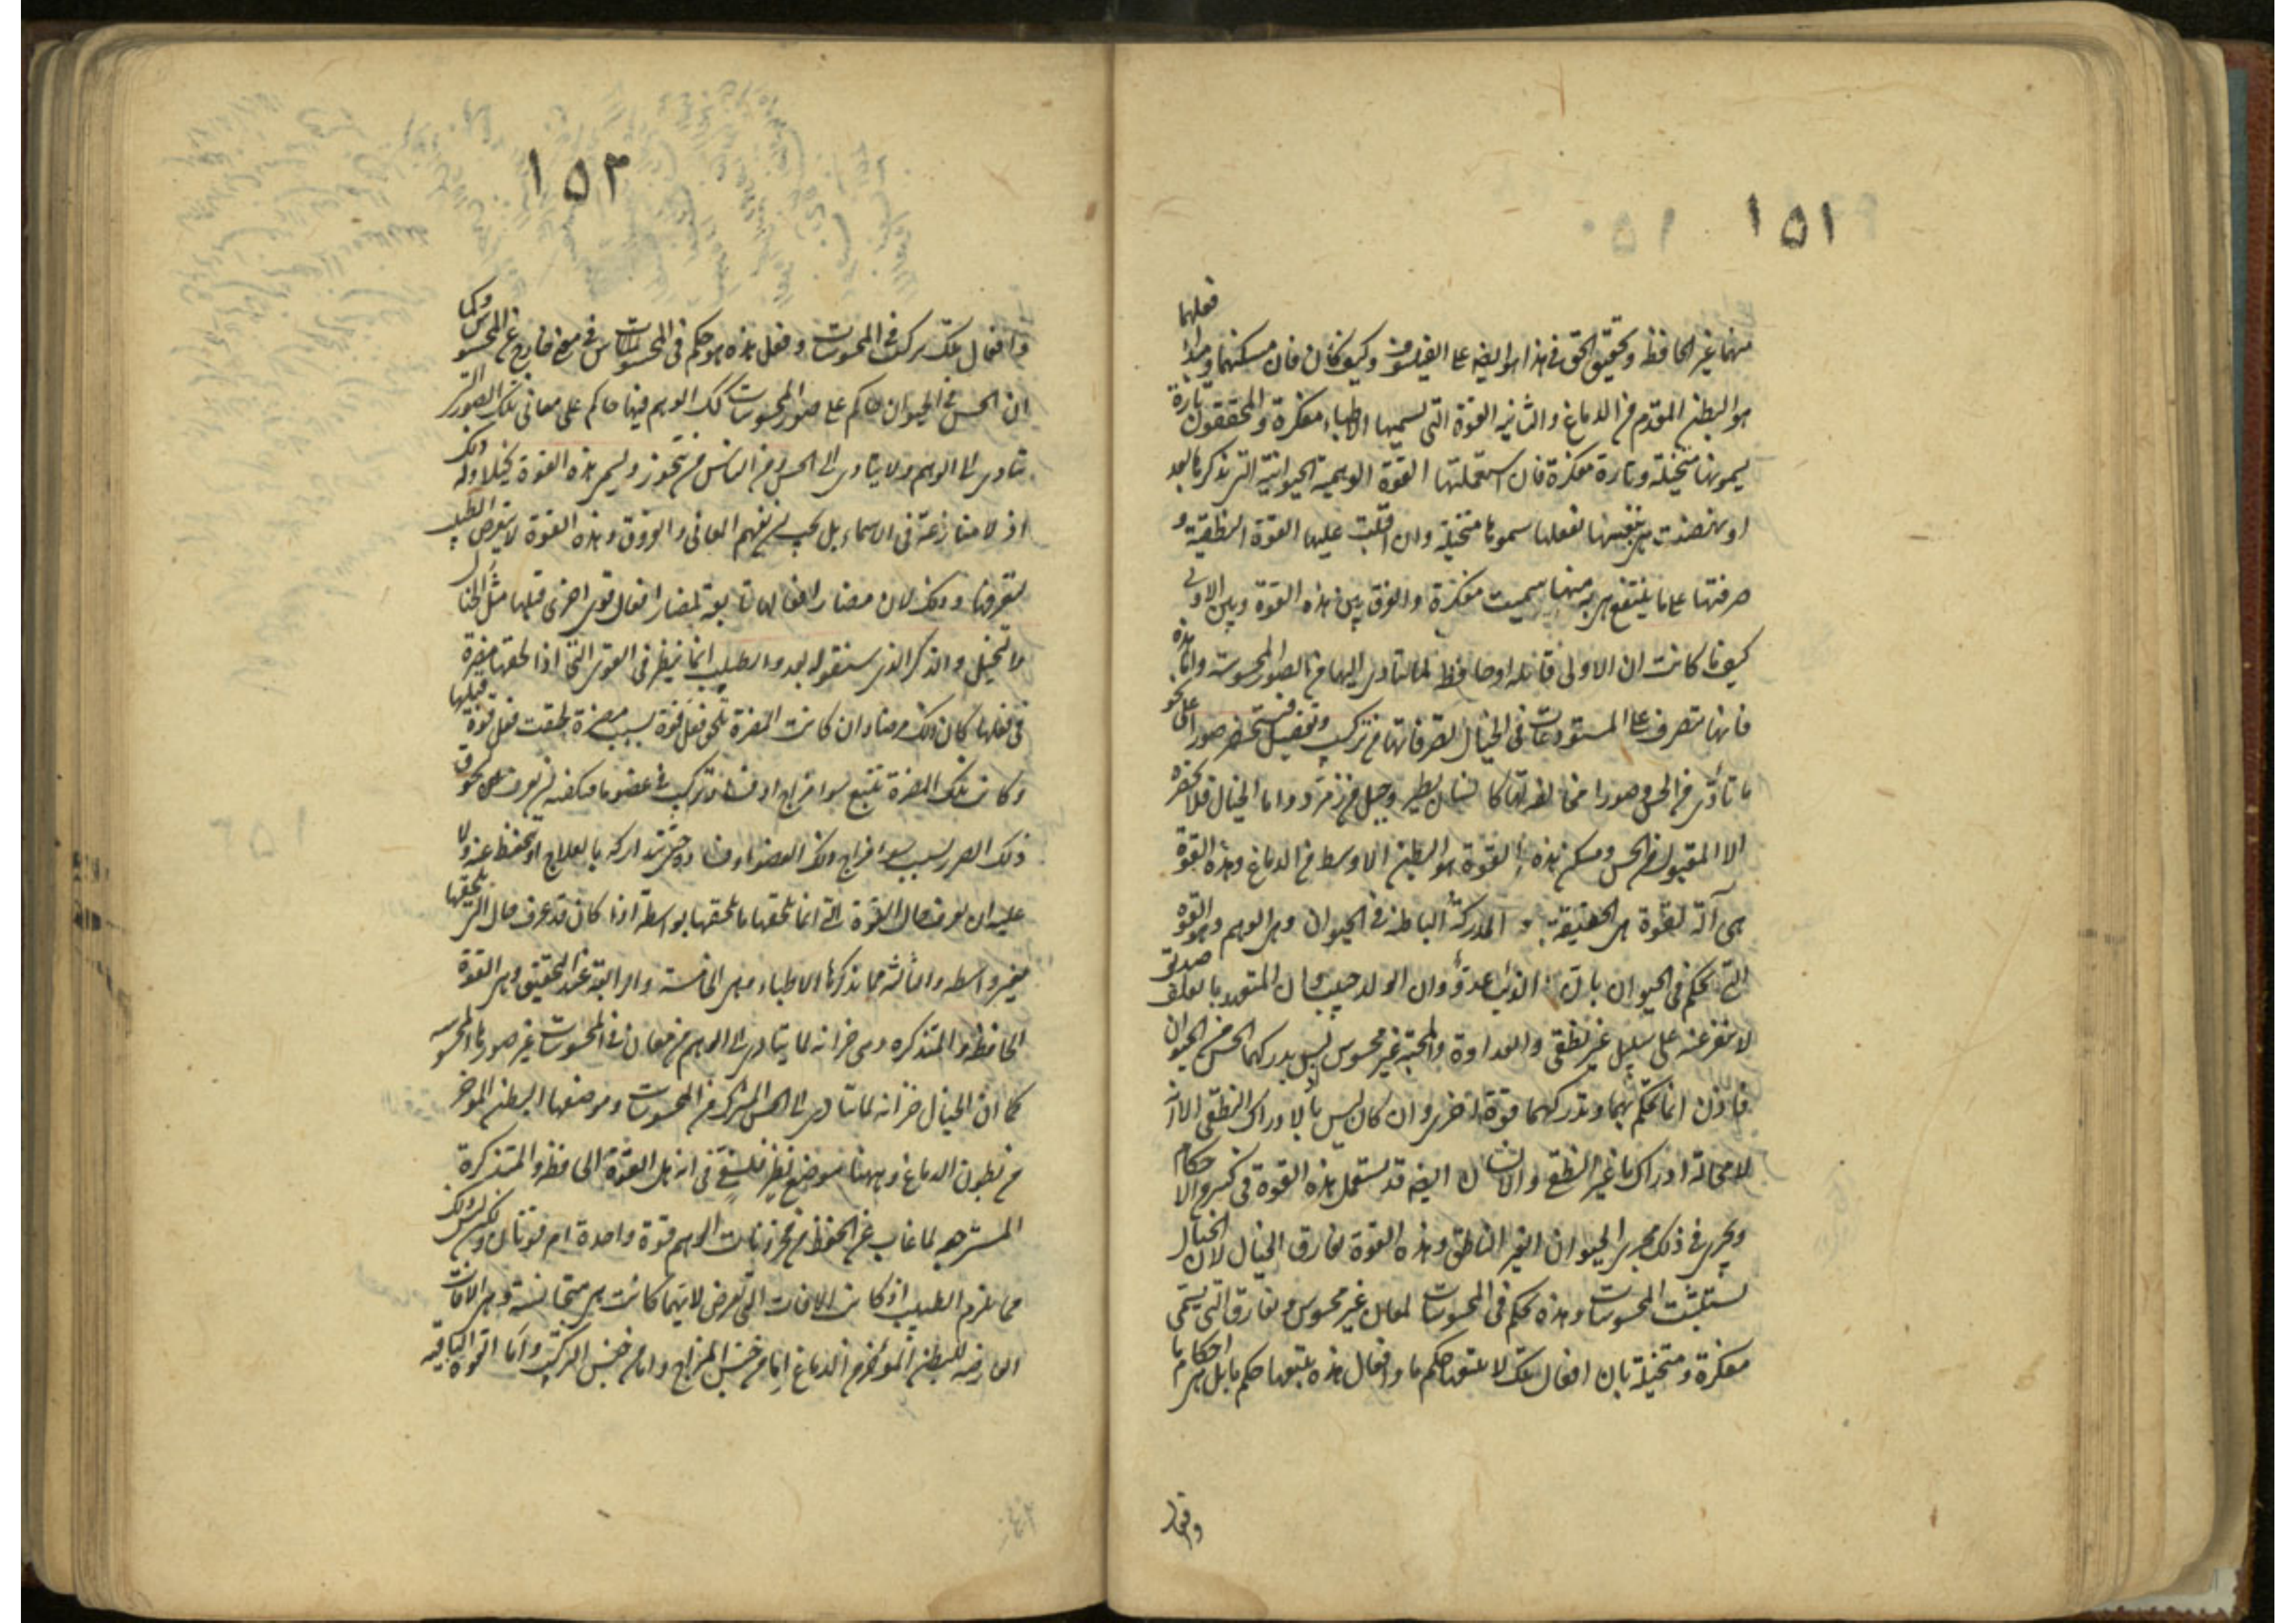 ١٥١
منهما غير الحافظ وتحقيق الحق في هذا هو ايضه على الفيلسوف وكيف كان فان مسكنهما ومبدا فعلهما
هو البطن المقدم من الدماغ والثانيه القوة التى يسميها الاطباء مفكرة والمحققون تارة
يسمونها متخيلة وتارة مفكرة فان استعملتها القوة الوهمية الحيوانية التى نذكرها بعد
او نهضت هى بنفسها لفعلها سموها متخيلة وان اقبلت عليها القوة النطقية و
صرفتها على ما ينتفع هى به منها سميت مفكرة والفرق بين هذه القوة وبين الاولى
كيف ما كانت ان الاولى قابله او حافظه لما يتادى اليها من الصور المحسوسة واما هذه
فانها تتصرف على المستودعات فى الخيال تصرفاتها من تركيب وتفصيل فتستحضر صورا على نحو
ما تأدى من الحس وصورا مخالفه لها كانسان يطير وجبل من زمرد واما الخيال فلا يحضره
الا المقبول من الحس ومسكن هذه القوة هو البطن الاوسط من الدماغ وهذه القوة
هى آلة لقوة هى بالحقيقة المدركة الباطنة فى الحيوان وهى الوهم وهو القوة
التى تحكم فى الحيوان بان الذئب عدو وان الولد حبيب وان المتعهد بالعلف صديق
لا ينفر عنه على سبيل غير نطقى والعداوة والمحبة غير محسوس ليس يدركهما الحس من الحيوان
فاذن انما تحكم بهما وتدركهما قوة اخرى وان كان ليس بالادراك النطقى الا انه
لا محالة ادراك ما غير النطقى والانسان ايضه قد يستعمل هذه القوة فى كثير من الاحكام
ويجرى فى ذلك مجرى الحيوان الغير الناطق وهذه القوة تفارق الخيال لان الخيال
يستثبت المحسوسات وهذه تحكم فى المحسوسات لمعان غير محسوس وتفارق التى تسمى
مفكرة ومتخيلة بان افعال تلك لا يتبعها حكم ما وافعال هذه يتبعها حكم ما بل هى احكام ما
وافعال
١٥٢
وافعال تلك تركبت فى المحسوسات وفعل هذه هو حكم فى المحسوسات من معنى خارج عن المحسوس وكما
ان الحس فى الحيوان حاكم على صور المحسوسات كك الوهم فيها حاكم على معانى تلك الصور التى
تتادى الى الوهم ولا يتادى الى الحس ومن الناس من يتجوز ويسمى هذه القوة تخيلا وله ذلك
اذ لا منازعة فى الاسماء بل يجب ان يفهم المعانى والفروق وهذه القوة لا يتعرض الطبيب
لتعرفها وذلك لان مضار افعالها تابعة لمضار افعال قوى اخرى قبلها مثل الخيال
والتخيل والذكر الذى سنقوله بعد والطبيب انما ينظر فى القوى التى اذا لحقها مضرة
فى فعلها كان ذلك مرضا وان كانت المضرة تلحق فعل قوة بسبب مضرة لحقت فعل قوة قبلها
وكانت تلك المضرة تتبع سوء مزاج او فساد تركيب فى عضو ما فيكفيه ان يعرف لحوق
ذلك الضرر بسبب سوء مزاج ذلك العضو او فساده حتى يتداركه بالعلاج او يتحفظ عنه ولا
عليه ان يعرف حال القوة التى انما يلحقها ما يلحقها بواسطة اذا كان قد عرف حال التى يلحقها
بغير واسطه والثالثه مما يذكرها الاطباء وهى الخامسة او الرابعة عند التحقيق وهى القوة
الحافظة المتذكره وهى خزانه لما يتادى الى الوهم من معان فى المحسوسات غير صورها المحسوسه
كما ان الخيال خزانه لما يتادى الى الحس المشترك من المحسوسات وموضعها البطن الموخر
من بطون الدماغ وههنا موضع نظر فلسفى فى انه هل القوة الحافظه والمتذكرة
المسترجعه لما غاب عن الحفظ من مخزونات الوهم قوة واحدة ام قوتان ولكن ليس ذلك
مما يلزم الطبيب اذ كانت الافات التى تعرض لايهما كانت هى متجانسة وهى الافات
العارضه للبطن المؤخر من الدماغ اما من جنس المزاج واما من جنس التركيب واما القوة الباقيه